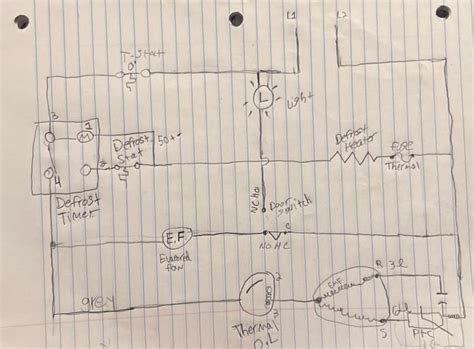 L1 L2
T-Stat
0°
L
Light
3
1
M
Defrost
Stat
50+
2
4
Defrost
Timer
Defrost
Heater
FUSE
Thermal
NC ho
Door
switch
C
NO NC
E.F
Evaporad
fan
grey
2
3
Thermal
O.L
R 3Ω
S
6Ω
PTC